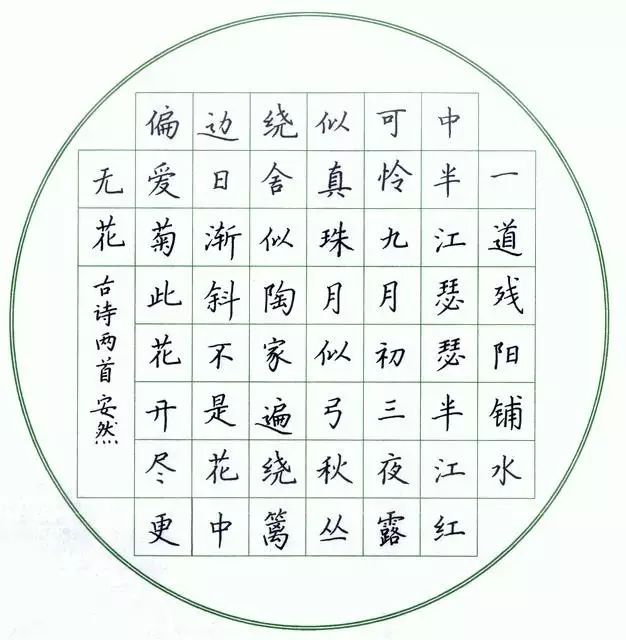 一道残阳铺水
中半江瑟瑟半江红
可怜九月初三夜露
似真珠月似弓秋丛
绕舍似陶家遍绕篱
边日渐斜不是花中
偏爱菊此花开尽更
无花
古诗两首安然